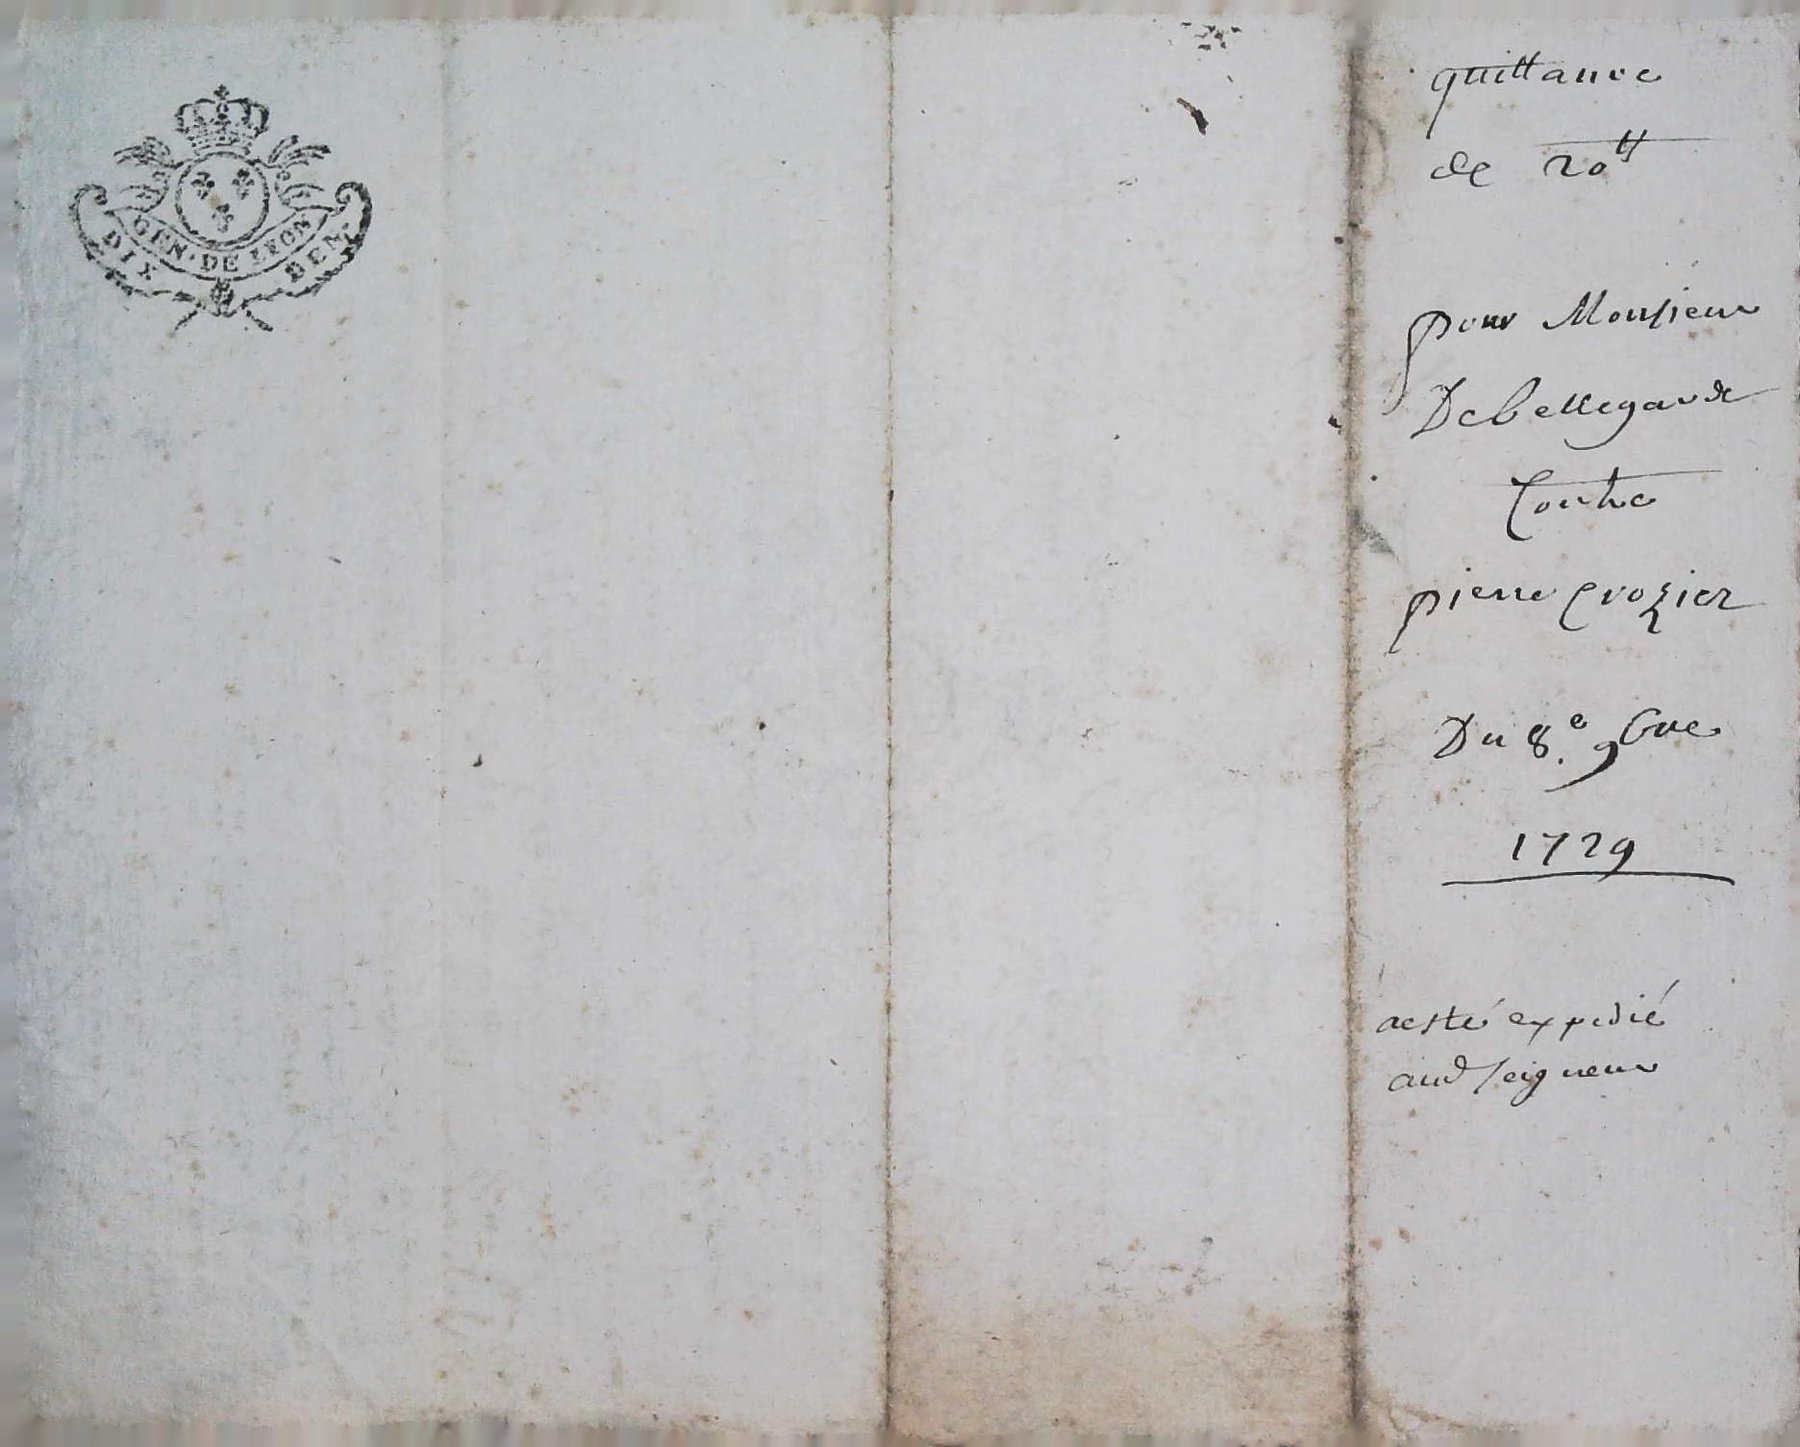 GEN. DE LYON
DIX DEN.
quittance
de 20tt
pour Monsieur
Debellegarde
Contre
pierre Crozier
Du 8.e 9bre
1729
a esté expedié
aud seigneur